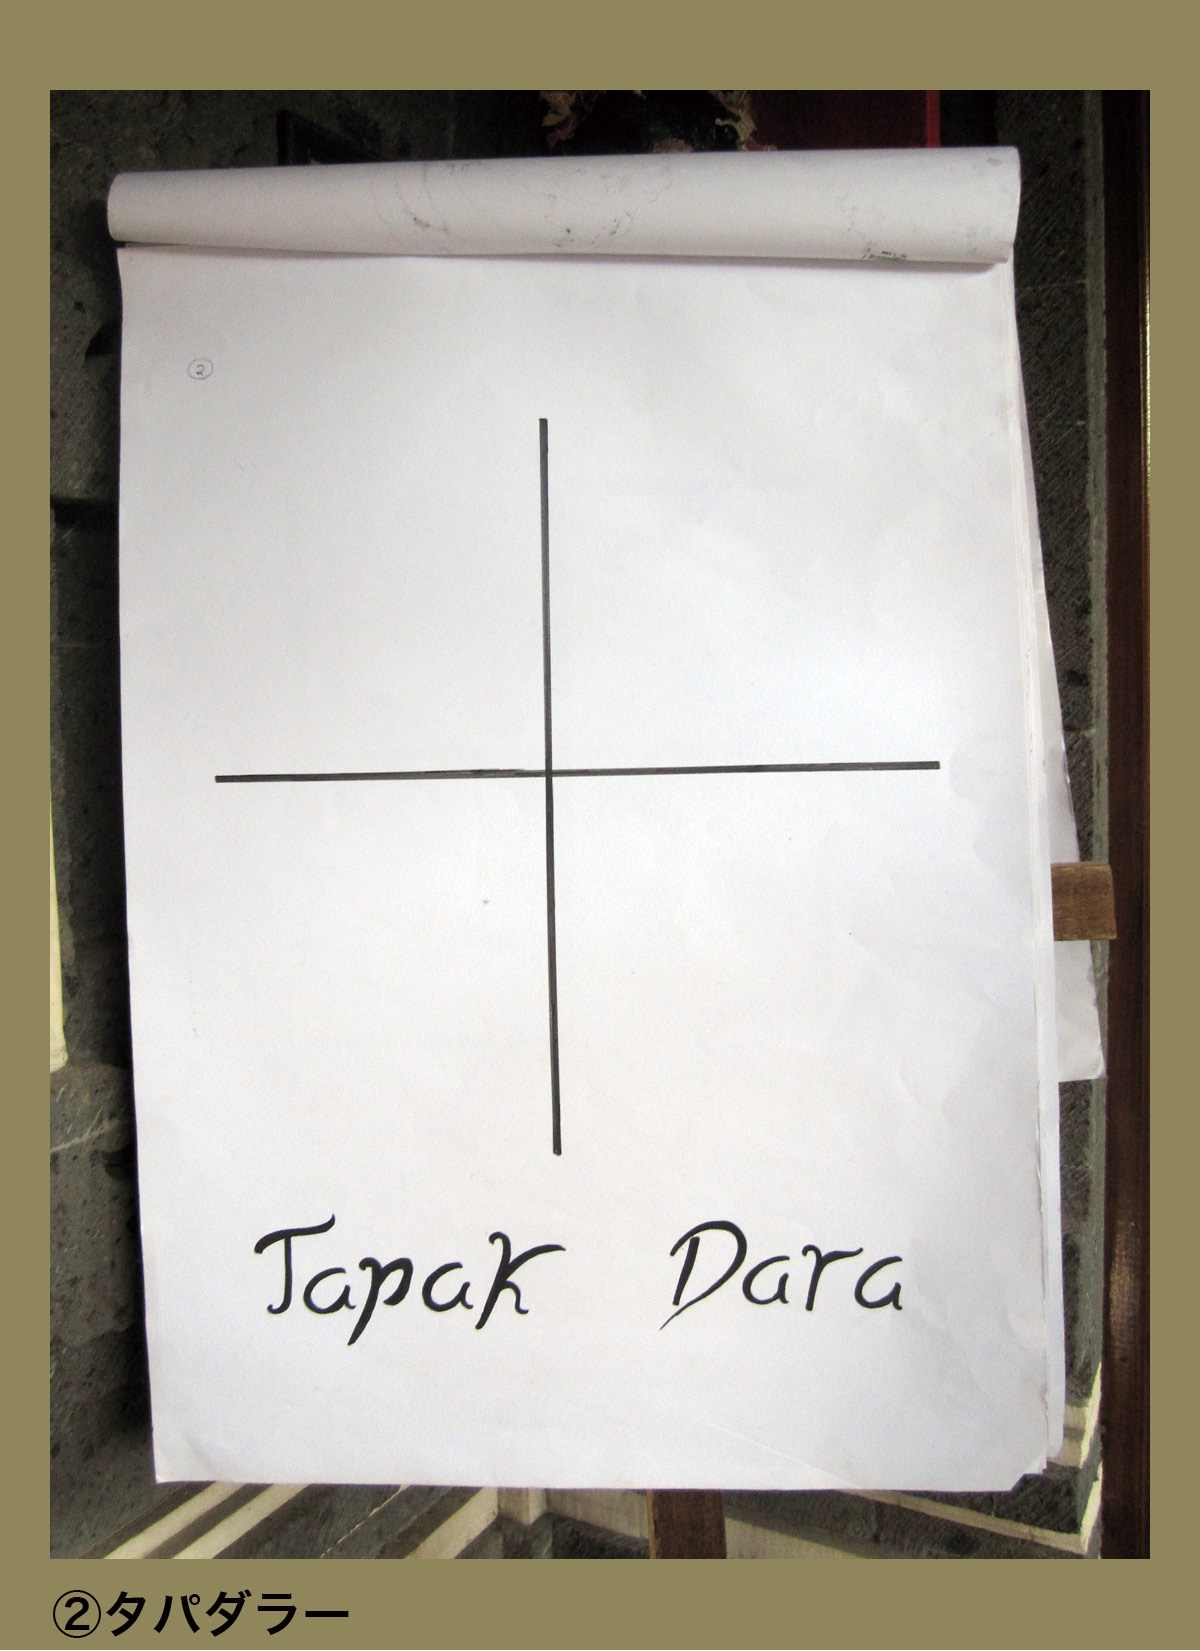 ②
Tapak Dara
②タパダラー